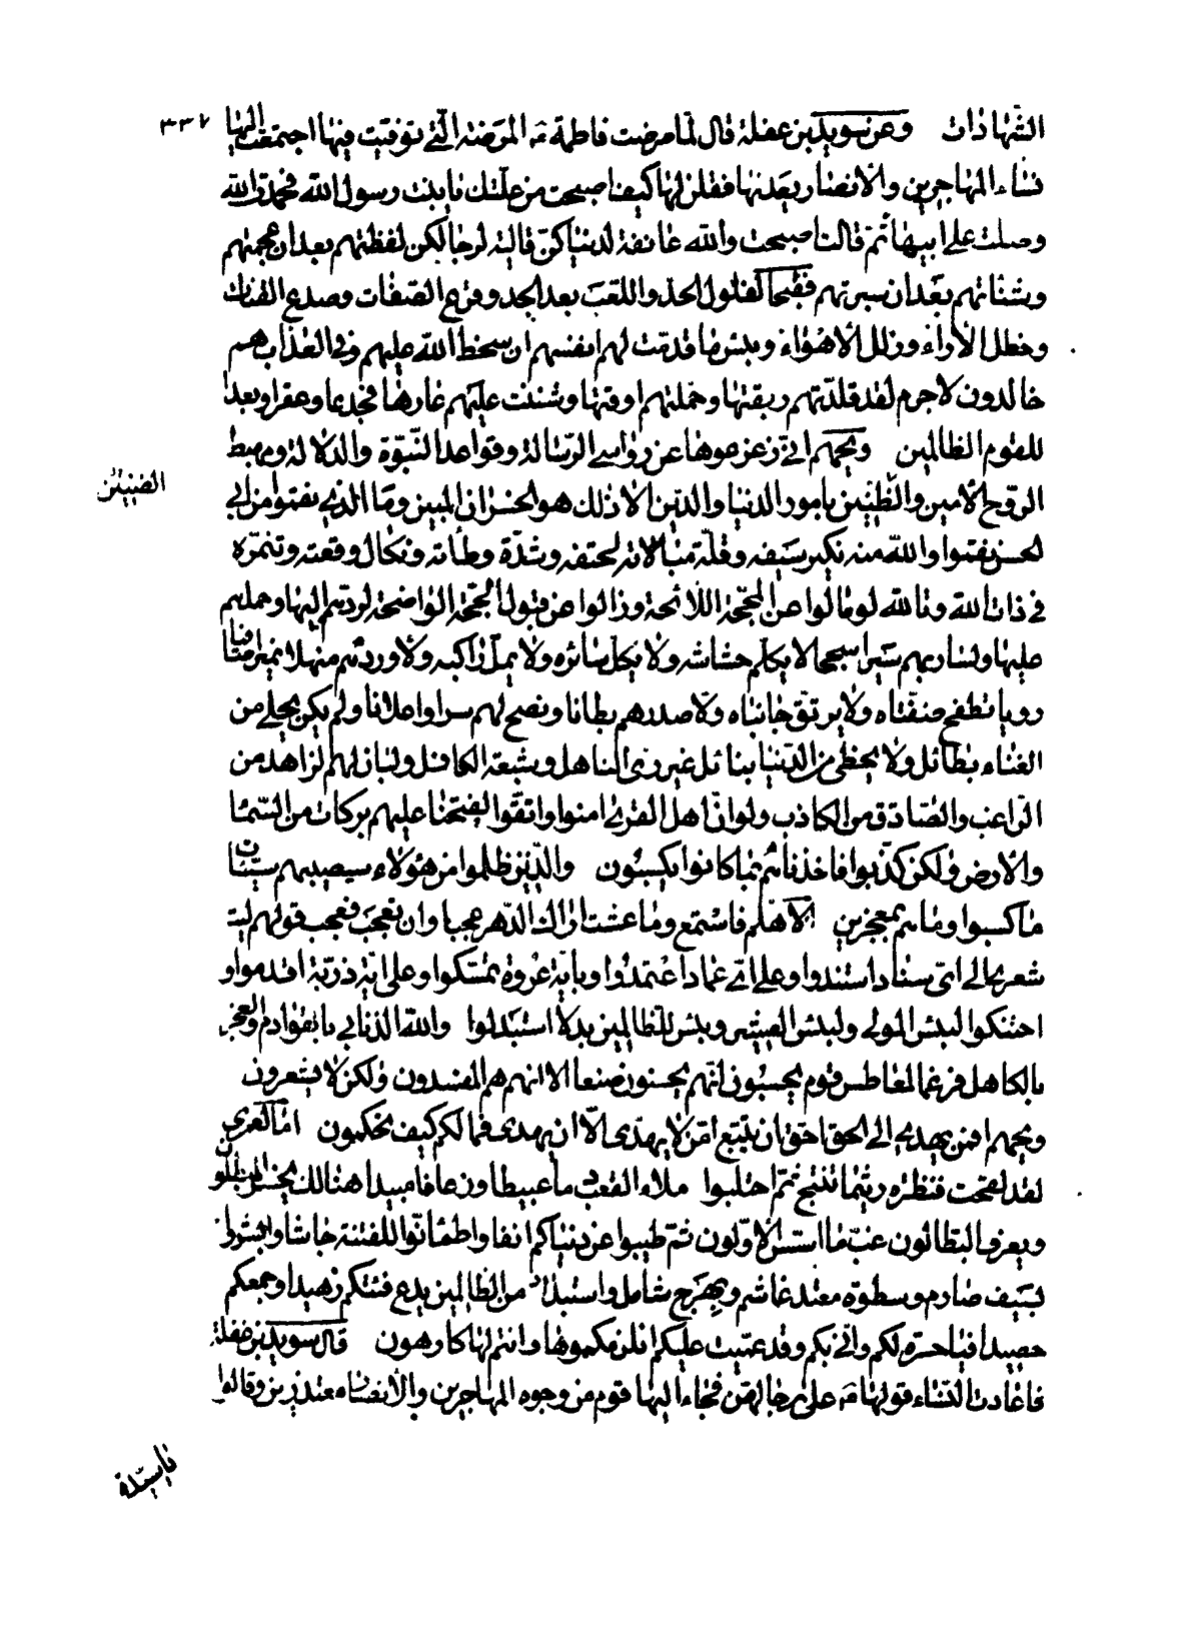 ٣٣٧
الشهادات وعن سويد بن غفلة قال لما مرضت فاطمة ع المرضة التي توفيت فيها اجتمعت اليها
نساء المهاجرين والانصار يعدنها فقلن لها كيف اصبحت من علتك يا بنت رسول الله فحمدت الله
وصلت على ابيها ثم قالت اصبحت والله عائفة لدنياكن قالية لرجالكن لفظتهم بعد ان عجمتهم
وشنأتهم بعد ان سبرتهم فقبحا لفلول الحد واللعب بعد الجد وقرع الصفات وصدع القناة
وخطل الاراء وزلل الاهواء وبئس ما قدمت لهم انفسهم ان سخط الله عليهم وفي العذاب هم
خالدون لا جرم لقد قلدتهم ربقتها وحملتهم اوقتها وشننت عليهم غارها فجدعا وعقرا وبعدا
للقوم الظالمين ويحهم انى زعزعوها عن رواسي الرسالة وقواعد النبوة والدلالة ومهبط
الروح الامين والطبين بامور الدنيا والدين الا ذلك هو الخسران المبين وما الذي نقموا من ابي
الحسن نقموا والله منه نكير سيفه وقلة مبالاته لحتفه وشدة وطأته ونكال وقعته وتنمره
في ذات الله وتالله لو مالوا عن المحجة اللائحة وزالوا عن قبول الحجة الواضحة لردهم اليها وحملهم
عليها ولسار بهم سيرا سجحا لا يكلم حشاشه ولا يكل سائره ولا يمل راكبه ولاوردهم منهلا نميرا صافيا
رويا تطفح ضفتاه ولا يرتق جانباه ولاصدرهم بطانا ونصح لهم سرا واعلانا ولم يكن يحلى من
الغناء بطائل ولا يحظى من الدنيا بنائل غير ري الناهل وشبعة الكافل ولبان لهم الزاهد من
الراغب والصادق من الكاذب ولو ان اهل القرى امنوا واتقوا لفتحنا عليهم بركات من السماء
والارض ولكن كذبوا فاخذناهم بما كانوا يكسبون والذين ظلموا من هؤلاء سيصيبهم سيئات
ما كسبوا وما هم بمعجزين الا هلم فاستمع وما عشت اراك الدهر عجبا وان تعجب فعجب قولهم ليت
شعري الى اي سناد استندوا وعلى اي عماد اعتمدوا وباية عروة تمسكوا وعلى اية ذرية اقدموا و
احتنكوا لبئس المولى ولبئس العشير وبئس للظالمين بدلا استبدلوا والله الذنابي بالقوادم والعجز
بالكاهل فرغما لمعاطس قوم يحسبون انهم يحسنون صنعا الا انهم هم المفسدون ولكن لا يشعرون
ويحهم افمن يهدي الى الحق احق ان يتبع امن لا يهدي الا ان يهدى فما لكم كيف تحكمون اما لعمري
لقد لقحت فنظرة ريثما تنتج ثم احتلبوا ملاء القعب دما عبيطا وزعافا مبيدا هنالك يخسر المبطلون
ويعرف البطالون غب ما اسس الاولون ثم طيبوا عن دنياكم انفا واطمأنوا للفتنة جاشا وابشروا
بسيف صارم وسطوة معتد غاشم وبهرج شامل واستبداد من الظالمين يدع فيئكم زهيدا وجمعكم
حصيدا فيا حسرة لكم وانى بكم وقد عميت عليكم انلزمكموها وانتم لها كارهون قال سويد بن غفلة
فاعادت النساء قولها ع على رجالهن فجاء اليها قوم من وجوه المهاجرين والانصار معتذرين وقالوا